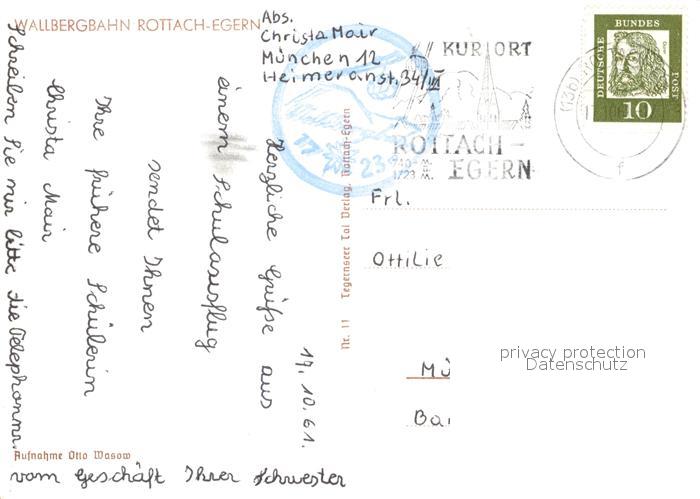 WALLBERGBAHN ROTTACH-EGERN
17. 10. 61.
Herzliche Grüße aus
einem Schulausflug
sendet Ihnen
Ihre frühere Schülerin
Christa Mair
Schreiben Sie mir bitte die Telephonnr.
vom Geschäft Ihrer Schwester
Aufnahme Otto Wasow
Nr. 11 Tegernseer Tal Verlag, Rottach-Egern
Abs.
Christa Mair
München 12
Heimeranst. 34/III
17 23
KURORT
ROTTACH-
EGERN
740-
1723
DEUTSCHE BUNDESPOST
Dürer
10
(13b)
f
Frl.
Ottilie
Mü
Ba
privacy protection
Datenschutz